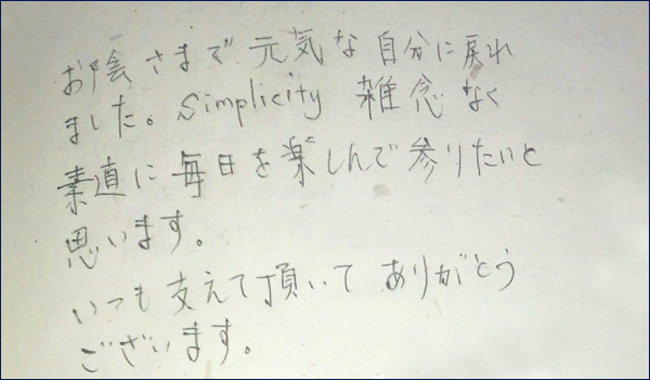 お陰さまで元気な自分に戻れ
ました。Simplicity 雑念なく
素直に毎日を楽しんで参りたいと
思います。
いつも支えて頂いてありがとう
ございます。